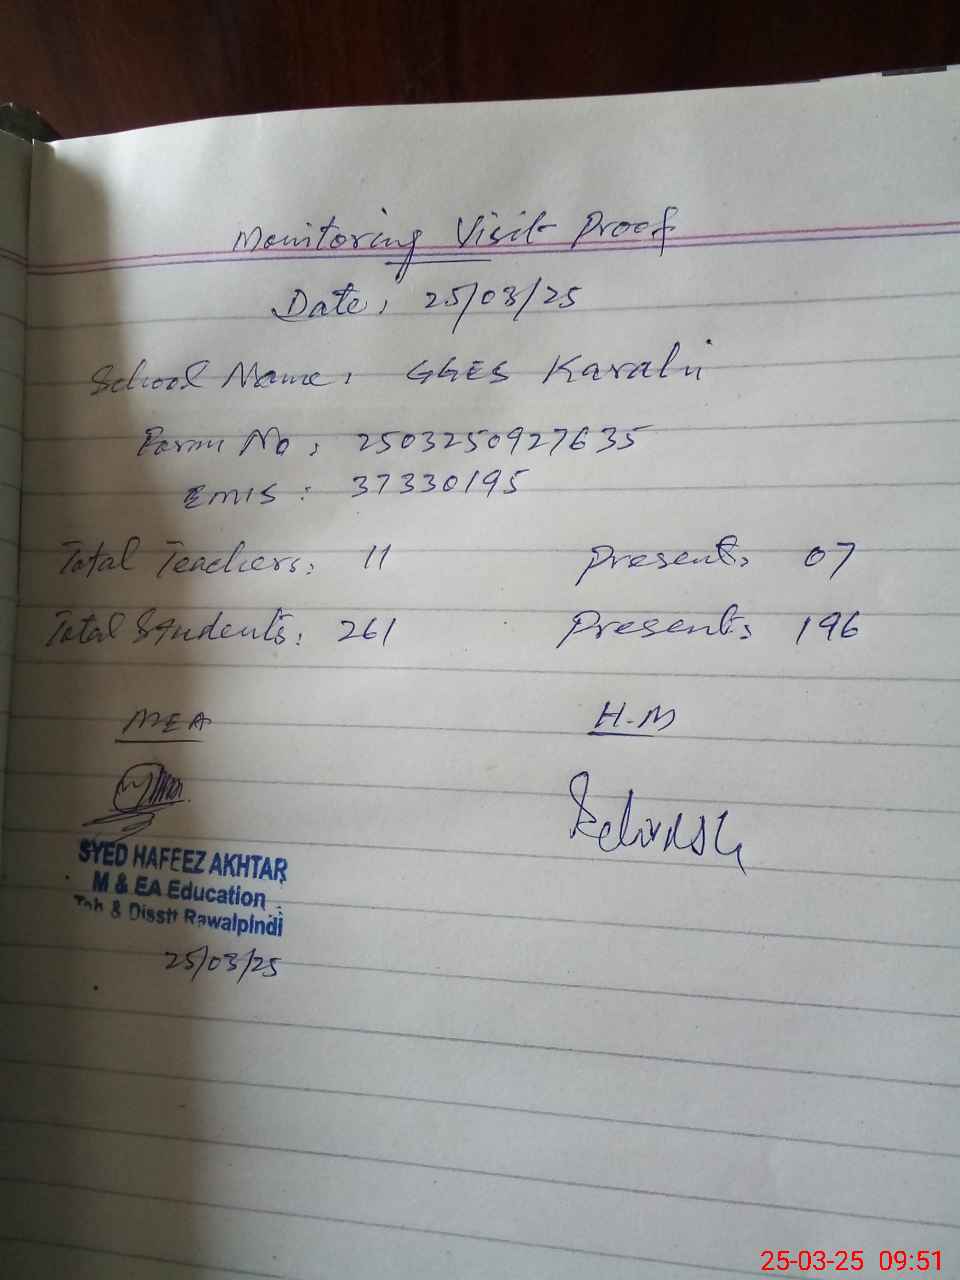 Monitoring Visit Proof
Date: 25/03/25
School Name: GGES Karahi
Form No: 2503250927635
EMIS: 37330195
Total Teachers: 11 Present: 07
Total Students: 261 Present: 196
MEA H.M
SYED HAFEEZ AKHTAR
M & EA Education
Teh & Disstt Rawalpindi
25/03/25
25-03-25 09:51